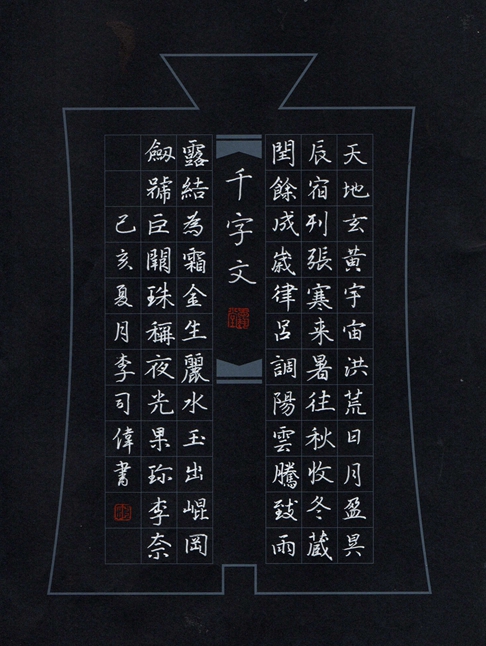 天地玄黃宇宙洪荒日月盈昃
辰宿列張寒来暑往秋收冬蔵
閏餘成嵗律呂調陽雲騰致雨
千字文
露結為霜金生麗水玉出崐岡
劔號巨闕珠稱夜光果珎李奈
己亥夏月李司偉書